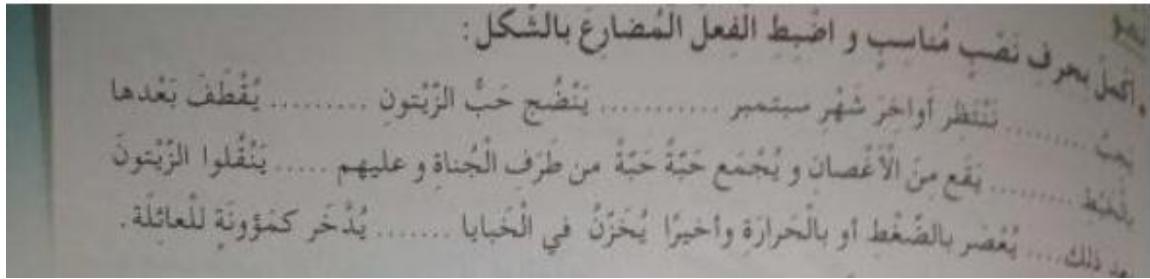 أكمل بحرف نصْبٍ مُناسِبٍ و اضْبِطِ الْفِعلَ الْمُضارِعَ بالشّكل :
يجبُ ......... نَنْتَظِر أَواخِرَ شَهْرِ سبتمبر ........... يَنْضُج حَبُّ الزّيْتونِ ......... يُقْطَفَ بَعْدها
بالْخَبْط ......... يَقَع مِنَ الْأغْصان و يُجْمَع حَبّةً حَبّةً من طَرَفِ الْجُناةِ و عليهم ..... يَنْقُلوا الزّيْتونَ
بعد ذلك .... يُعْصَر بالضّغْط أو بالْحَرارَةِ وأخيرًا يُخَزّنُ في الْخَبايا ....... يُدّخَر كمَؤونَةٍ للْعائِلَة .